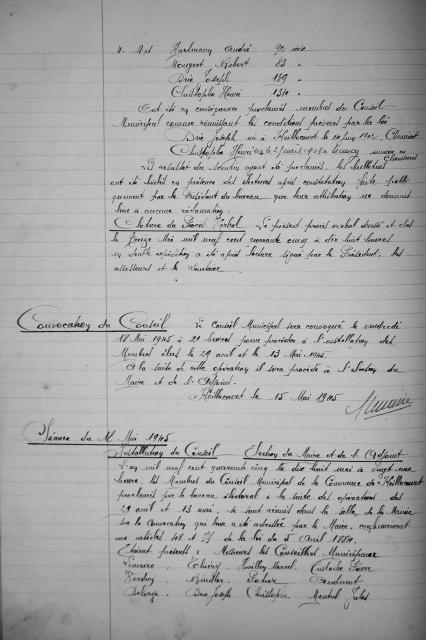 M. Hartmann André 92 voix
Mougeot Robert 83 "
Brie Joseph 139 "
Christophe Henri 134 "
Ont été en conséquence proclamés membres du Conseil
Municipal comme réunissant les conditions prévues par la loi
Brie Joseph né à Haillecourt le
Christophe Henri né le 29 avril 1908 à Nancy
Le résultat du scrutin ayant été proclamé, les bulletins
ont été brûlés en présence des électeurs après constatation faite
par le Président du bureau, que leur attribution ne donnait
lieu à aucune réclamation.
Clôture du Procès Verbal Le présent procès verbal dressé et clos
le treize Mai mil neuf cent quarante cinq à dix huit heures
en double expédition a été après lecture signé par le Président, les
assesseurs et le Secrétaire
Convocation du Conseil Le Conseil Municipal sera convoqué le vendredi
18 Mai 1945 à 21 heures pour procéder à l'installation des
Membres élus le 29 avril et le 13 Mai 1945.
A la suite de cette opération il sera procédé à l'élection du
Maire et de l'Adjoint.
Haillecourt le 15 Mai 1945
Séance du 18 Mai 1945
Installation du Conseil Election du Maire et de l'Adjoint
L'an mil neuf cent quarante cinq le dix huit mai à vingt une
heure, les Membres du Conseil Municipal de la Commune de Haillecourt
proclamés par le bureau électoral à la suite des opérations des
29 avril et 13 mai, se sont réunis dans la salle de la Mairie
sur la convocation qui leur a été adressée par le Maire, conformément
aux articles 48 et 77 de la loi du 5 Avril 1884.
Etaient présents : Messieurs les Conseillers Municipaux
Lemaire Thiéry Marcel
Verdun
Brie Joseph Christophe Jules